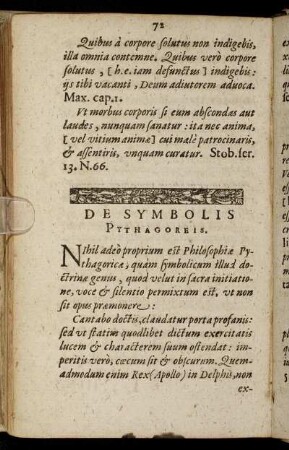 72
Quibus à corpore solutus non indigebis,
illa omnia contemne. Quibus verò corpore
solutus, [h.e. iam defunctus] indigebis:
ijs tibi vacanti, Deum adiutorem advoca.
Max. cap. 1.
Vt morbus corporis si eum abscondas aut
laudes, nunquam sanatur: ita nec anima,
[vel vitium animæ] cui malè patrocinaris,
& assentiris, vnquam curatur. Stob. ser.
13. N. 66.
DE SYMBOLIS
PYTHAGOREIS.
NIhil adeò proprium est Philosophiæ Py-
thagoricæ, quàm symbolicum illud do-
ctrinæ genus, quod velut in sacra initiatio-
ne, voce & silentio permixtum est, vt non
sit opus præmonere:
Cantabo doctis, claudatur porta profanis:
sed vt statim quodlibet dictum exercitatis
lucem & characterem suum ostendat: im-
peritis verò, cæcum sit & obscurum. Quem-
admodum enim Rex (Apollo) in Delphis, non
ex-